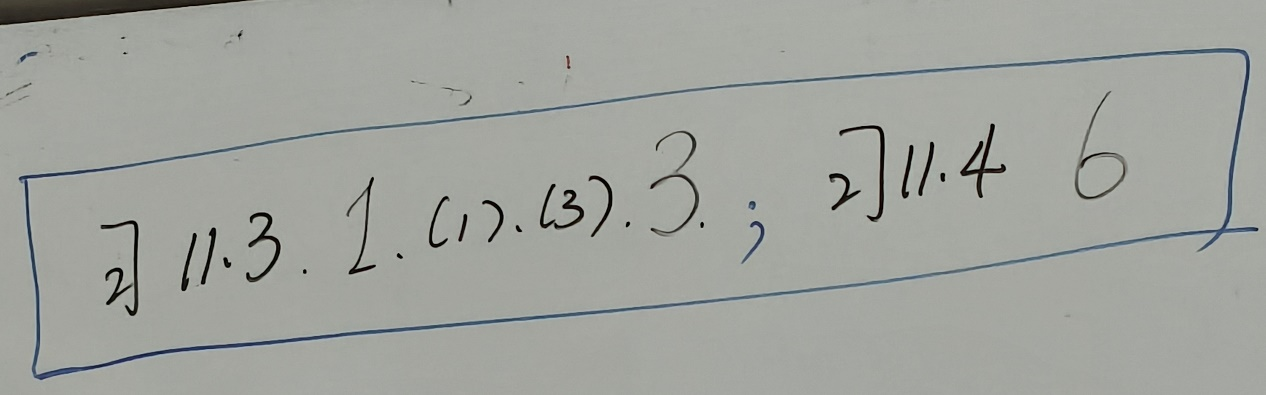 习 11.3. 1. (1). (3). 3. ; 习 11.4 6